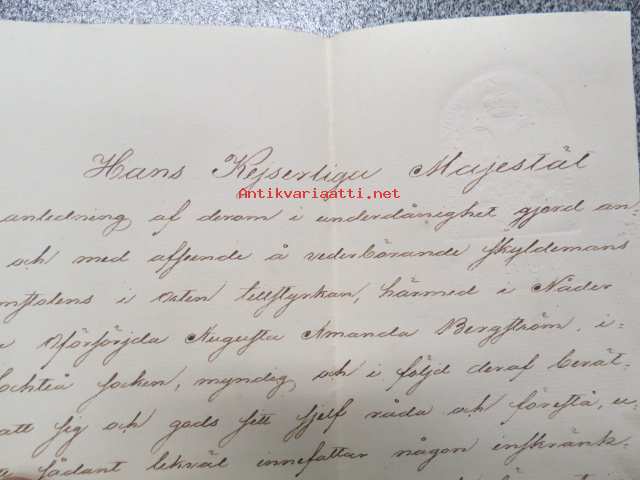 Hans Kejserliga Majestät
Antikvariaatti.net
anledning af derom i underdånighet gjord an-
och med afseende å vederbörande skyldemans
mstolens i orten tillstyrkan, härmed i Nåder
oförsörjda Augusta Amanda Bergström, i
ochteå socken, myndig, och i följd deraf berät-
att sig och gods sitt sjelf råda och förestå, u,
sådant likväl innefattar någon inskränk-